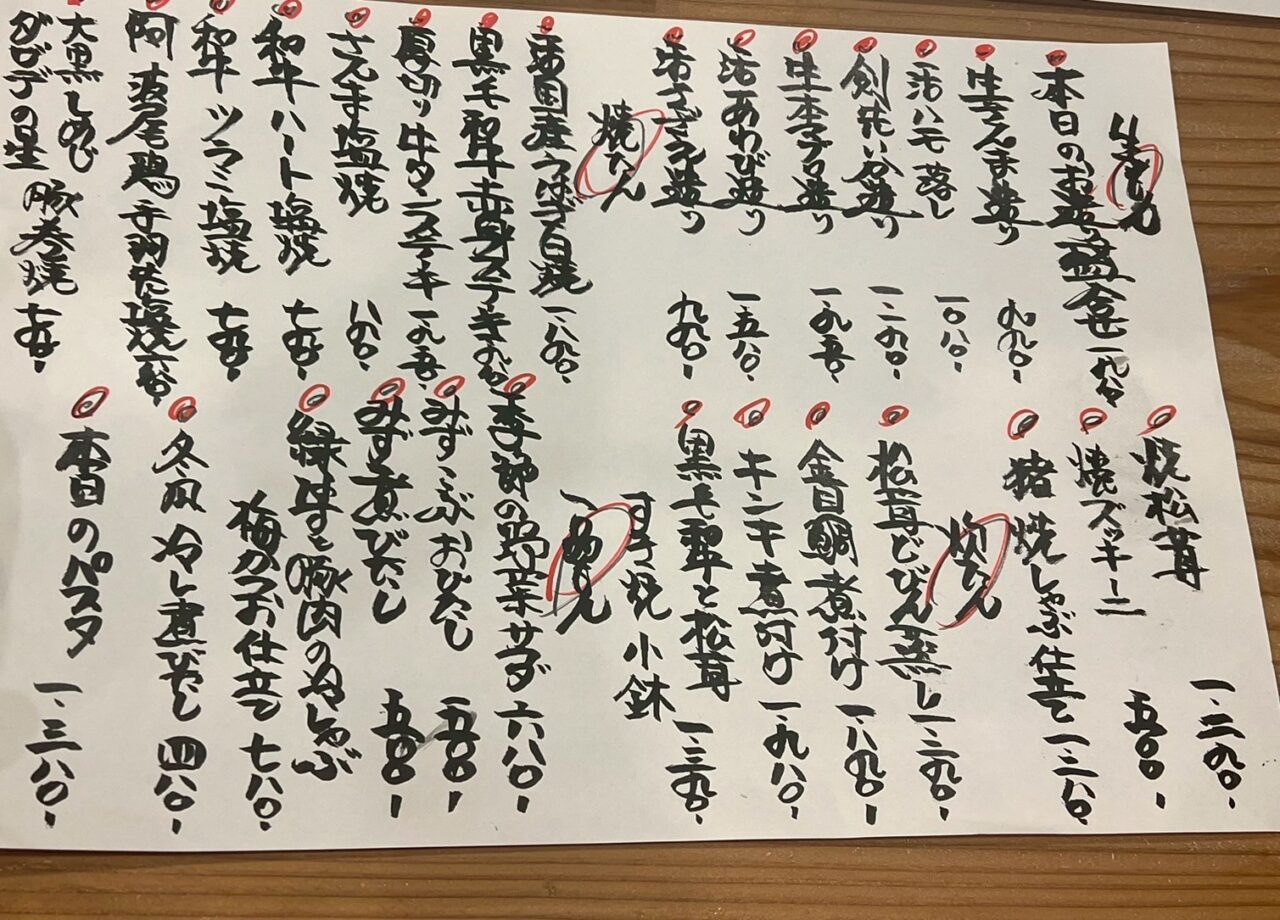 生もん
本日のお造り盛合せ
生さんま造り 九九〇-
活ハモ落し 一〇八〇-
剣先いか造り 一、二九〇-
生本マグロ造り
活あわび造り 一、五八〇-
活さざえ造り 九九〇-
焼もん
活国産うなぎ白焼 一、八九〇-
黒毛和牛赤身ステーキ
厚切り牛タンステーキ
さんま塩焼 八九〇-
和牛ハート塩焼 七九〇-
和牛ツラミ塩焼 七九〇-
阿波尾鶏手羽先塩焼
大黒しめじ
豚巻焼 七九〇-
焼松茸 一、二九〇-
焼ズッキーニ 五八〇-
猪焼しゃぶ仕立て 一、三八〇-
炊もん
松茸どびん蒸し 一、二九〇-
金目鯛煮付け 一、八九〇-
キンキ煮付け 一、九八〇-
黒毛和牛と松茸
すき焼小鉢 一、三九〇-
一的もん
季節の野菜サラダ 六八〇-
みずこぶおひたし 五八〇-
みず煮びたし 五八〇-
緑ナスと豚肉の冷しゃぶ
梅かつお仕立て 七八〇-
冬瓜冷し煮びたし 四八〇-
本日のパスタ 一、三八〇-